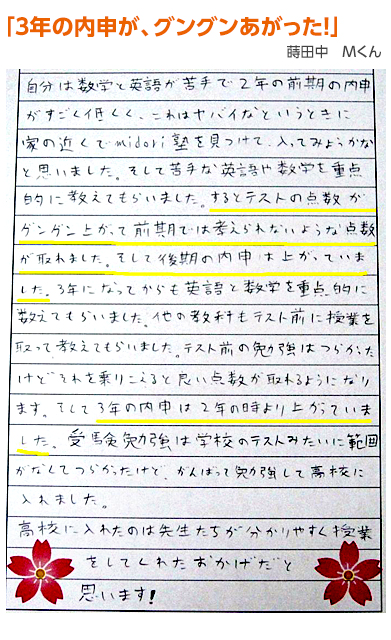 「3年の内申が、グングンあがった!」
蒔田中　Mくん
自分は数学と英語が苦手で2年の前期の内申
がすごく低くく、これはヤバイなというときに
家の近くでmidori塾を見つけて、入ってみようかな
と思いました。そして苦手な英語や数学を重点
的に教えてもらいました。するとテストの点数が
グングン上がって前期では考えられないような点数
が取れました。そして後期の内申は上がっていま
した。3年になってからも英語と数学を重点的に
教えてもらいました。他の教科もテスト前に授業を
取って教えてもらいました。テスト前の勉強はつらかった
けどそれを乗りこえると良い点数が取れるようになり
ます。そして3年の内申は2年の時より上がっていま
した。受験勉強は学校のテストみたいに範囲
がなくてつらかったけど、がんばって勉強して高校に
入れました。
高校に入れたのは先生たちが分かりやすく授業
をしてくれたおかげだと
思います!